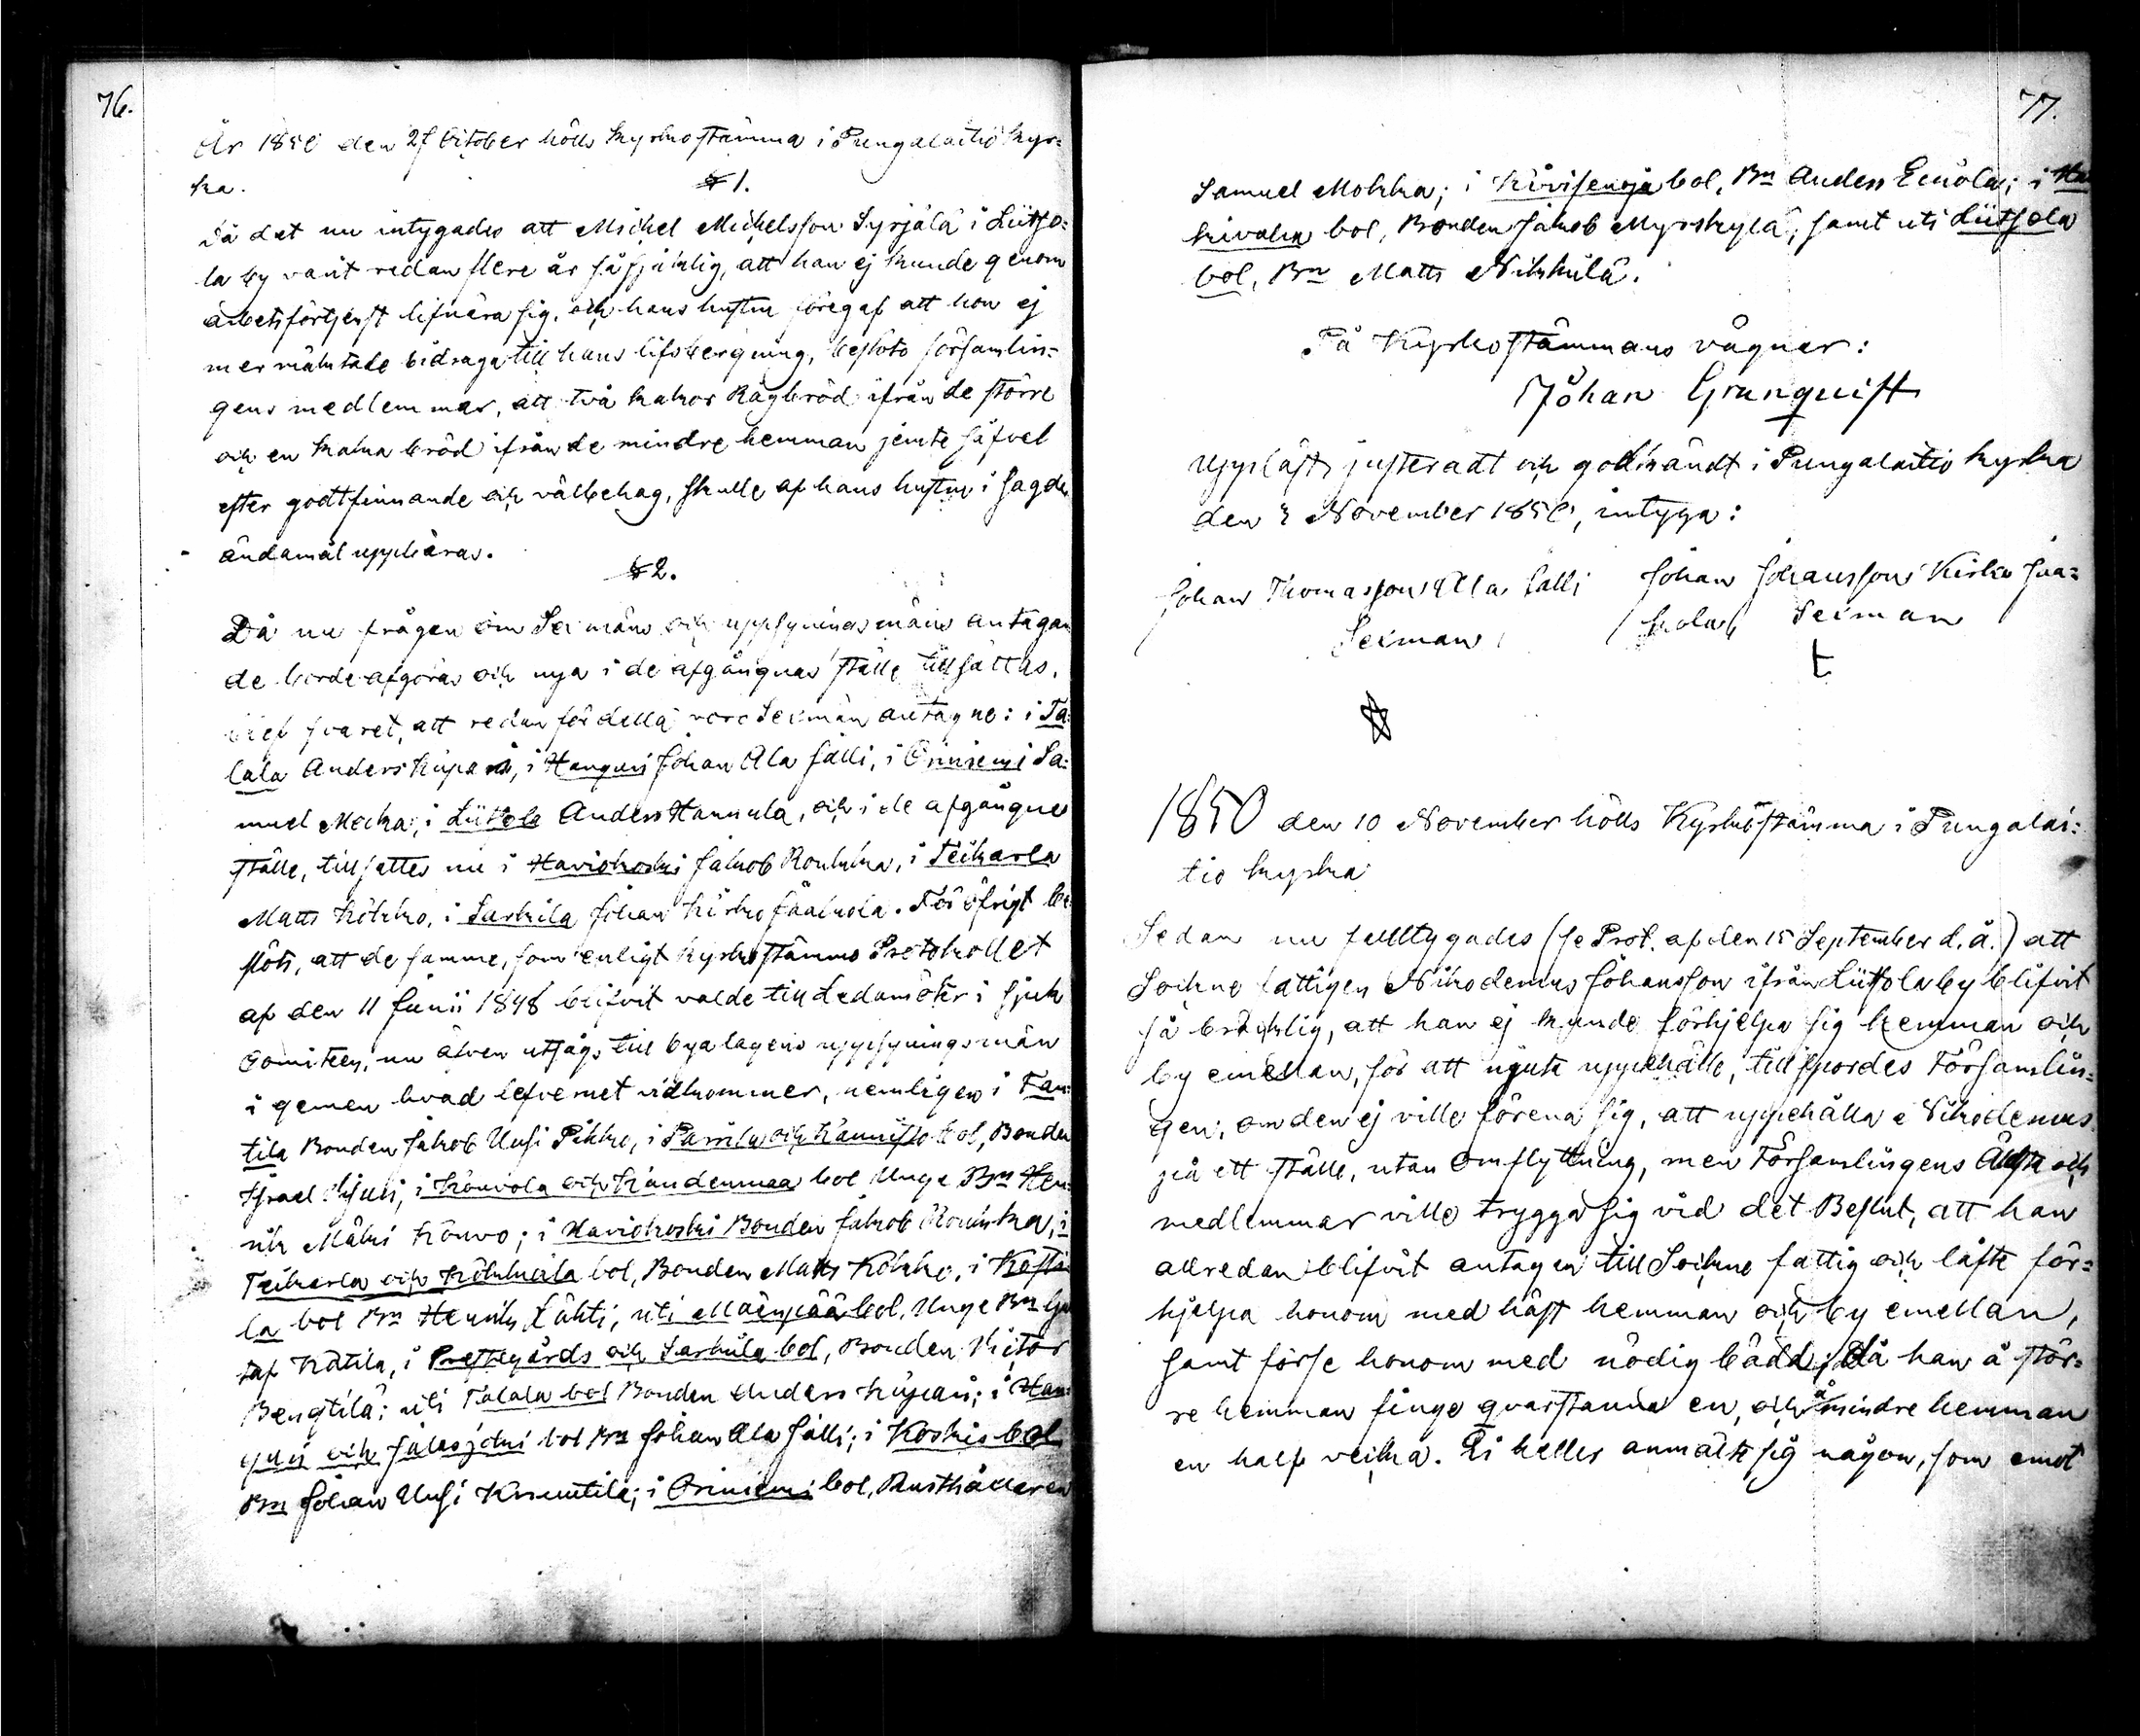 76.
År 1850 den 27 October hölls Kyrkostämma i Pungalaitio Kyr=
ka.
§ 1.
Då det nu intygades att Michel Michelsson Syrjälä i Liitso=
la by varit redan flere år så sjuklig, att han ej kunde genom
arbetsförtjenst lifnära sig, och hans hustru föregaf att hon ej
mer mäktade bidraga till hans lifsbergning, beslöto församlin=
gens medlemmar, att två kakor Rågbröd ifrån de större
och en kaka bröd ifrån de mindre hemman jemte såfvel
efter godtfinnande och välbehag, skulle af hans hustru i sagde
ändamål uppbäras.
§ 2.
Då nu frågan om Sexmäns och uppsyningsmäns antagan
de borde afgöras och nya i de afgångnas ställe tillsättas,
blef svaret, att redan för detta voro Sexmän antagne: i Ta=
lala Anders Kupari, i Hanguis Johan Ala Jälli, i Oriniemi Sa=
muel Mokka, i Liitsola Anders Hannula, och i de afgångnes
ställe, tillsattes nu i Haviokoski Jakob Roukka, i Teikarla
Matts Kökkö, i Sarkila Johan Kirko Jaakola. För öfrigt be=
slöts, att de samme, som enligt Kyrkostämmo Protokollet
af den 11 Junii 1848 blifvit valde till Ledamöter i Sjuk
Comiteen, nu äfven utsågs till byalagens uppsyningsmän
i gemen hvad lefvernet vidkommer, nemligen i Tan=
tila Bonden Jakob Uusi Pikko, i Parila och Kannisto bol, Bonden
Israel, i Kouvola och Kandenmaa bol Unge Bn Hen=
rik Mäki Kouvo; i Haviokoski Bonden Jakob Roukka, i
Teikarla och Kökkäilä bol, Bonden Matts Kökkö, i Kosti
la bol Bn Henrik Lähti, uti Maenpää bol, Unge Bn Gu
taf Kätilä, i Prestgårds och Sarkila bol, Bonden Victor
Bengtilä; uti Talala bol Bonden Anders Kupari; i Han=
guis och Jalasjoki bol Bn Johan Ala Jälli; i Koskis bol
Bn Johan Uusi Knuutila; i Oriniemi bol, Rusthållaren
77.
Samuel Mokka; i Kärisenoja bol, Bn Anders Einola; i Ha
kivalu bol, Bonden Jakob Myrskylä, samt uti Liitsola
bol, Bn Matts Nikkilä.
På Kyrkostämmans vägnar:
Johan Granquist
Uppläst, justeradt och godkändt i Pungalaitio kyrka
den 3 November 1850, intyga:
Johan Thomasson Ala Jälli
Sexman
Johan Johansson Kirko Jaa=
kola Sexman
1850 den 10 November hölls Kyrkostämma i Pungalai=
tio kyrka
Sedan nu fulltygades (se Prot. af den 15 September d. å.) att
Sockne fattigen Nikodemus Johansson ifrån Liitsola by blifvit
så bräcklig, att han ej kunde förhjelpa sig hemman och
by emellan, för att njuta uppehälle, tillspordes Församlin=
gen, om den ej ville förena sig, att uppehålla Nikodemus
på ett ställe, utan omflyttning, men Församlingens Äldste och
medlemmar ville trygga sig vid det Beslut, att han
allredan blifvit antagen till Sockne fattig och läfte för=
hjelpa honom med häst hemman och by emellan,
samt förse honom med nödig bädd, då han å stör=
re hemman finge qvarstanna en, och å mindre hemman
en half vecka. Ei heller anmälte sig någon, som emot